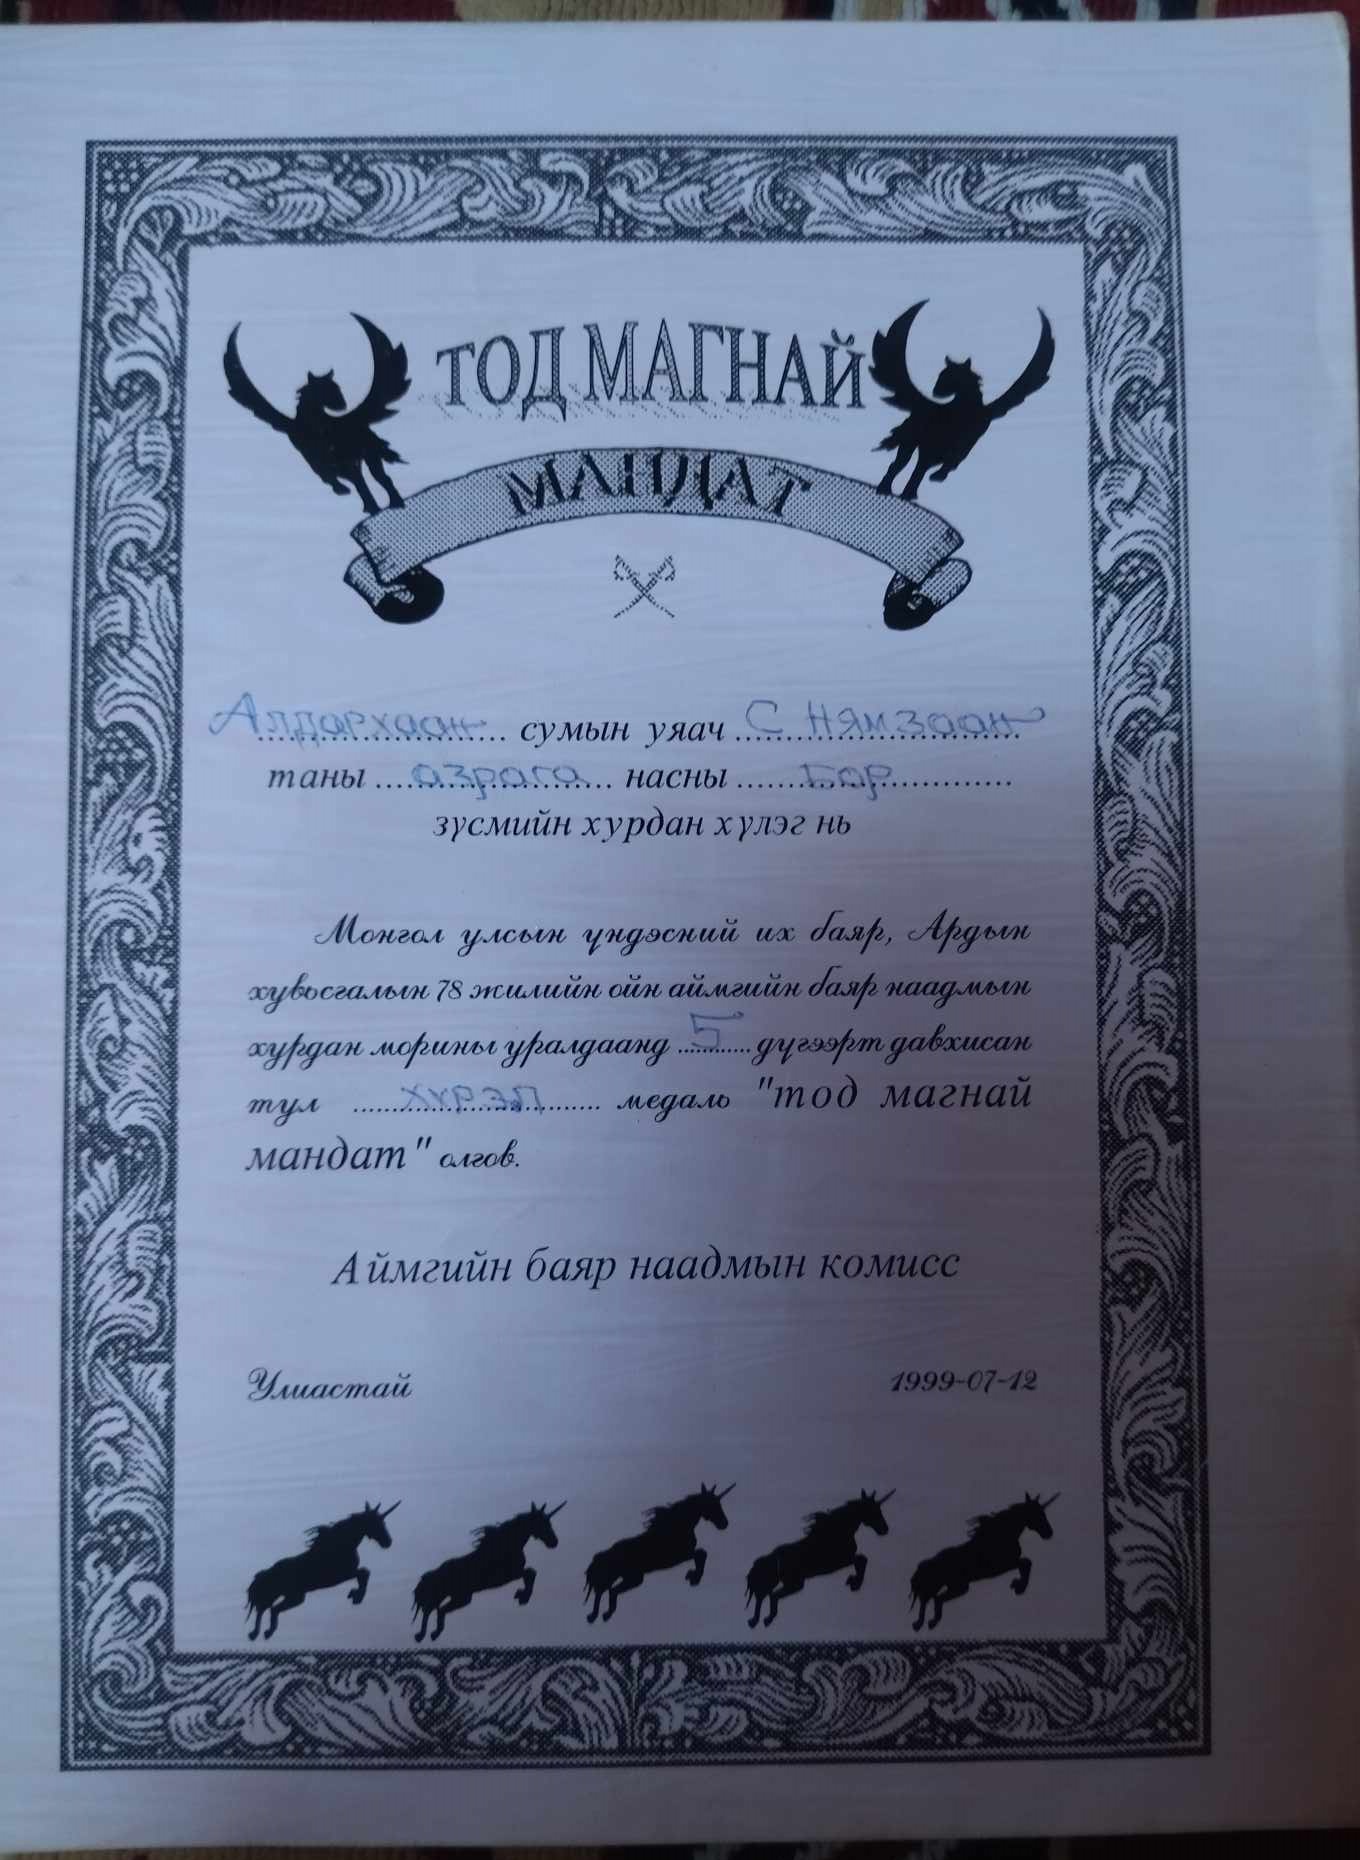 ТОД МАГНАЙ
МАНДАТ
Алдархаан сумын уяач С Нямзаан
таны азрага насны Бор
зүсмийн хурдан хүлэг нь
Монгол улсын үндэсний их баяр, Ардын
хувьсгалын 78 жилийн ойн аймгийн баяр наадмын
хурдан морины уралдаанд 5 дүгээрт давхисан
тул хүрэл медаль "тод магнай
мандат" олгов.
Аймгийн баяр наадмын комисс
Улиастай 1999-07-12